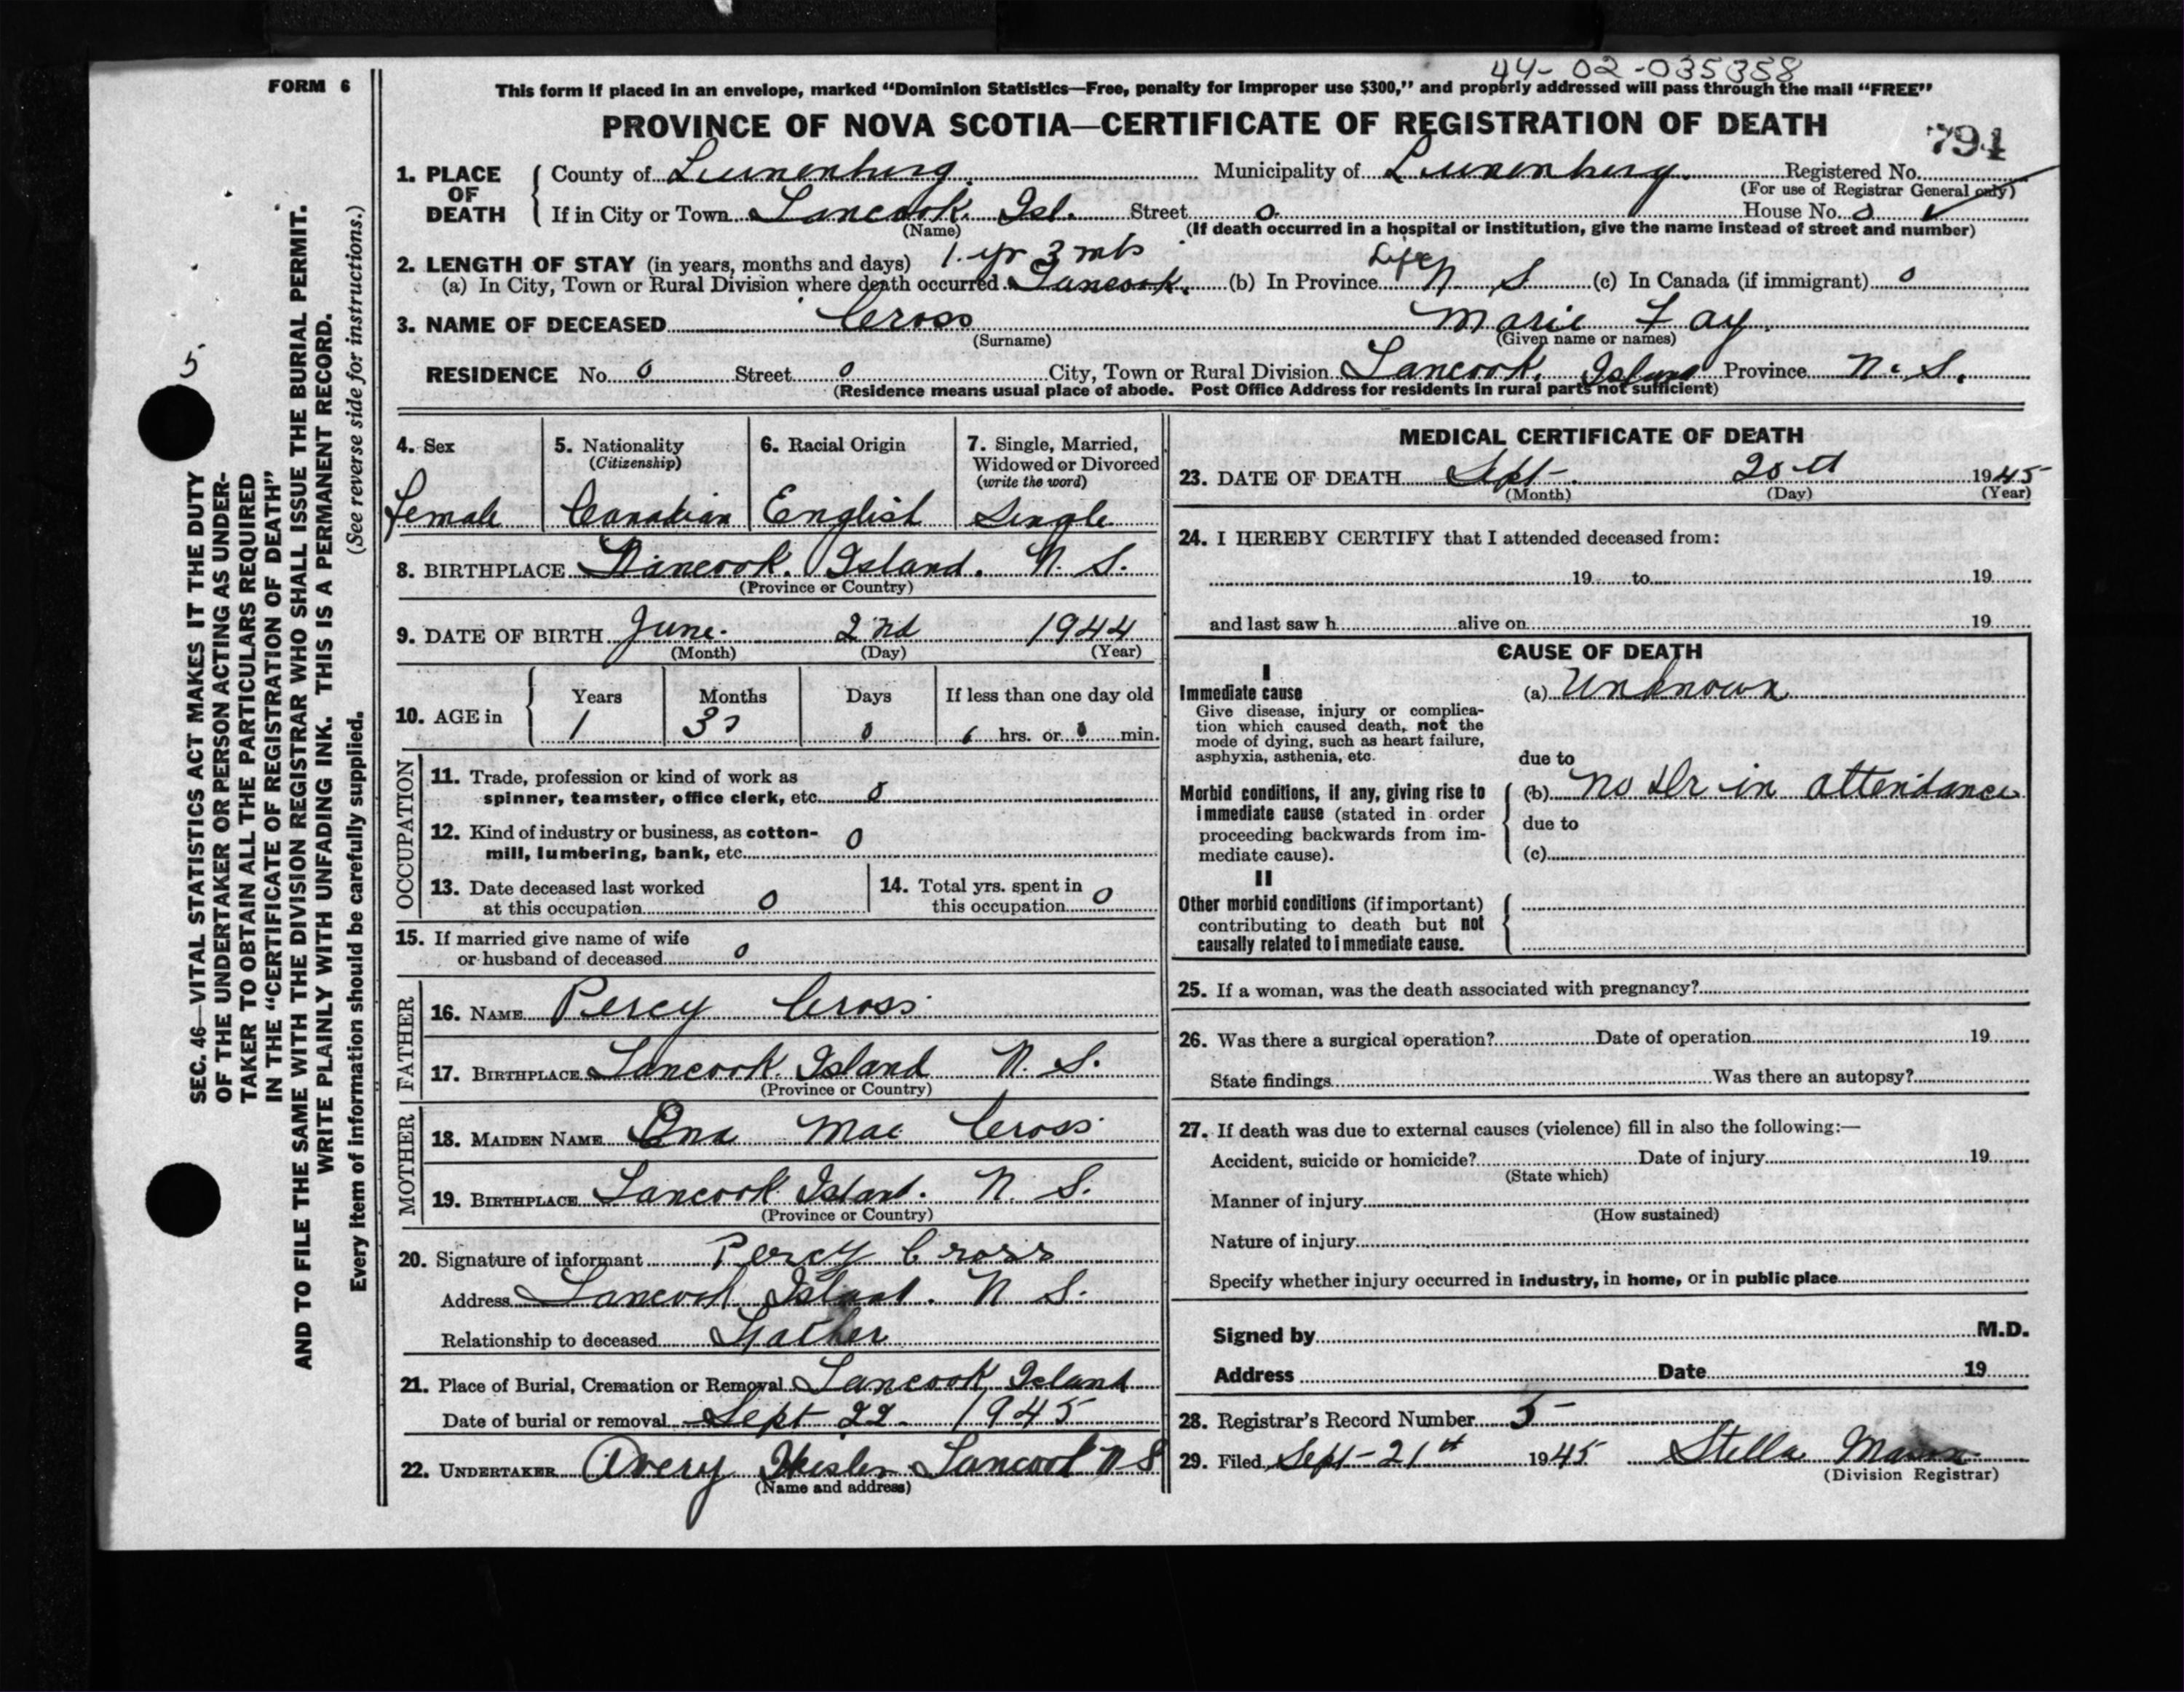 44-02-035358
FORM 6
This form if placed in an envelope, marked “Dominion Statistics—Free, penalty for improper use $300,” and properly addressed will pass through the mail “FREE”
PROVINCE OF NOVA SCOTIA—CERTIFICATE OF REGISTRATION OF DEATH
794
1. PLACE OF DEATH
County of Lunenburg. Municipality of Lunenburg. Registered No.
(For use of Registrar General only)
If in City or Town Tancook. Isl. Street 0. House No. 0
(Name) (If death occurred in a hospital or institution, give the name instead of street and number)
2. LENGTH OF STAY (in years, months and days) 1. yr 3 mts Life
(a) In City, Town or Rural Division where death occurred Tancook. (b) In Province N S (c) In Canada (if immigrant) 0
3. NAME OF DECEASED Cross Marie Fay.
(Surname) (Given name or names)
RESIDENCE No. 0 Street 0 City, Town or Rural Division Tancook. Island Province N. S.
(Residence means usual place of abode. Post Office Address for residents in rural parts not sufficient)
4. Sex
female
5. Nationality
(Citizenship)
Canadian
6. Racial Origin
English
7. Single, Married,
Widowed or Divorced
(write the word)
Single
8. BIRTHPLACE Tancook. Island. N. S.
(Province or Country)
9. DATE OF BIRTH June. 2nd 1944
(Month) (Day) (Year)
10. AGE in
Years Months Days If less than one day old
1 3 0 hrs. or 0 min.
OCCUPATION
11. Trade, profession or kind of work as
spinner, teamster, office clerk, etc. 0
12. Kind of industry or business, as cotton-
mill, lumbering, bank, etc. 0
13. Date deceased last worked
at this occupation 0
14. Total yrs. spent in
this occupation 0
15. If married give name of wife
or husband of deceased 0
FATHER
16. NAME Percy Cross
17. BIRTHPLACE Tancook Island N. S.
(Province or Country)
MOTHER
18. MAIDEN NAME Mae Cross
19. BIRTHPLACE Tancook Island. N. S.
(Province or Country)
20. Signature of informant Percy Cross
Address Tancook Island. N S.
Relationship to deceased Father
21. Place of Burial, Cremation or Removal Tancook Island
Date of burial or removal Sept 22. 1945
22. UNDERTAKER Avery Heisler Tancook N S
(Name and address)
MEDICAL CERTIFICATE OF DEATH
23. DATE OF DEATH Sept. 20th 1945
(Month) (Day) (Year)
24. I HEREBY CERTIFY that I attended deceased from:
19 to 19
and last saw h alive on 19
CAUSE OF DEATH
I
Immediate cause
Give disease, injury or complica-
tion which caused death, not the
mode of dying, such as heart failure,
asphyxia, asthenia, etc.
(a) Unknown
due to
Morbid conditions, if any, giving rise to
immediate cause (stated in order
proceeding backwards from im-
mediate cause).
(b) no Dr in attendance
due to
(c)
II
Other morbid conditions (if important)
contributing to death but not
causally related to immediate cause.
25. If a woman, was the death associated with pregnancy?
26. Was there a surgical operation? Date of operation 19
State findings Was there an autopsy?
27. If death was due to external causes (violence) fill in also the following:—
Accident, suicide or homicide? Date of injury 19
(State which)
Manner of injury
(How sustained)
Nature of injury
Specify whether injury occurred in industry, in home, or in public place
Signed by M.D.
Address Date 19
28. Registrar's Record Number 5
29. Filed Sept-21st 1945 Stella Mason
(Division Registrar)
5
SEC. 46—VITAL STATISTICS ACT MAKES IT THE DUTY
OF THE UNDERTAKER OR PERSON ACTING AS UNDER-
TAKER TO OBTAIN ALL THE PARTICULARS REQUIRED
IN THE “CERTIFICATE OF REGISTRATION OF DEATH”
AND TO FILE THE SAME WITH THE DIVISION REGISTRAR WHO SHALL ISSUE THE BURIAL PERMIT.
WRITE PLAINLY WITH UNFADING INK. THIS IS A PERMANENT RECORD.
Every item of information should be carefully supplied. (See reverse side for instructions.)